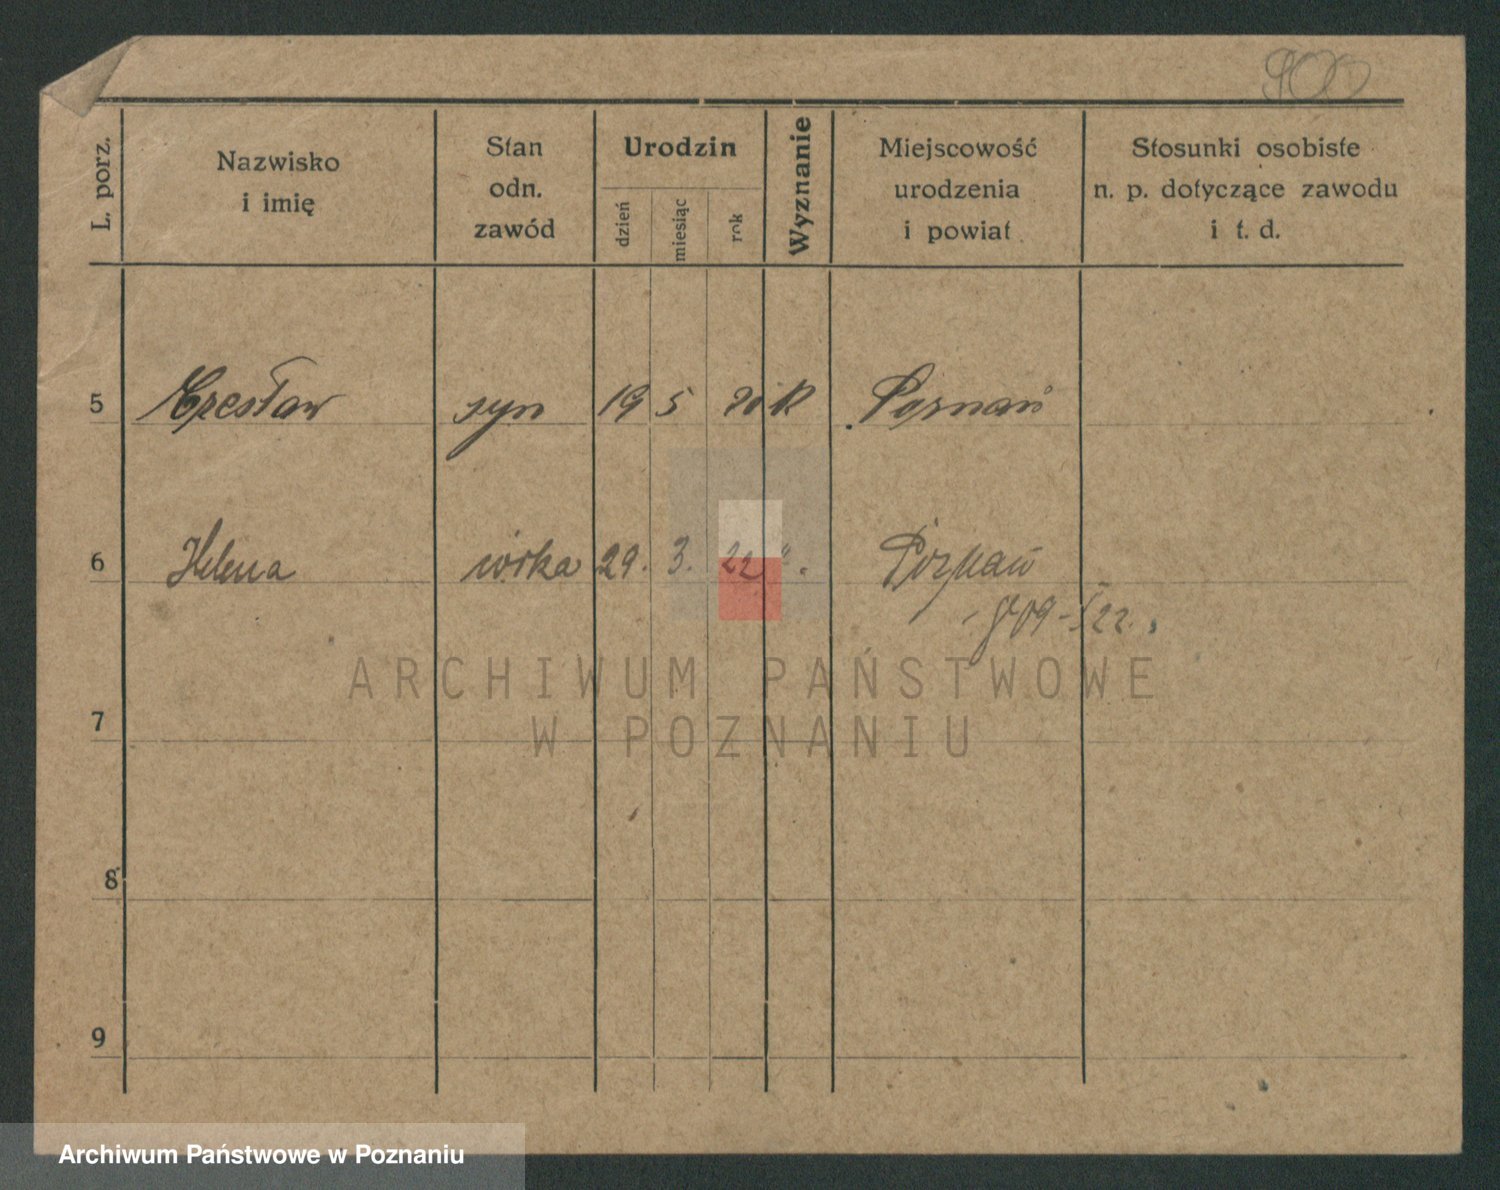 900
L. porz.
Nazwisko
i imię
Stan
odn.
zawód
Urodzin
dzień
miesiąc
rok
Wyznanie
Miejscowość
urodzenia
i powiat
Stosunki osobiste
n. p. dotyczące zawodu
i t. d.
5 Czesław syn 19 5 20 K Poznań
6 Helena córka 29. 3. 22 " Poznań
7
8
9
ARCHIWUM PAŃSTWOWE
W POZNANIU
Archiwum Państwowe w Poznaniu